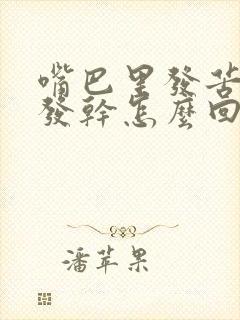 嘴巴里發苦
發幹怎麼回
潘苹果